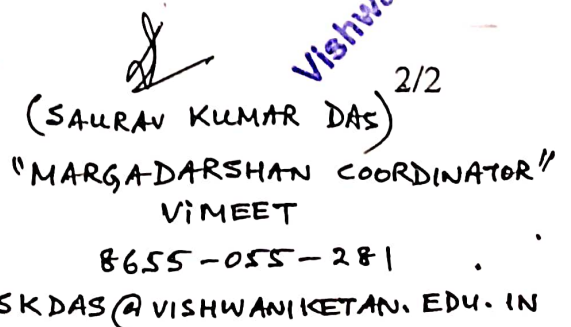 Vishw
2/2
(SAURAV KUMAR DAS)
"MARGADARSHAN COORDINATOR"
ViMEET
8655-055-281
SKDAS@VISHWANIKETAN.EDU.IN